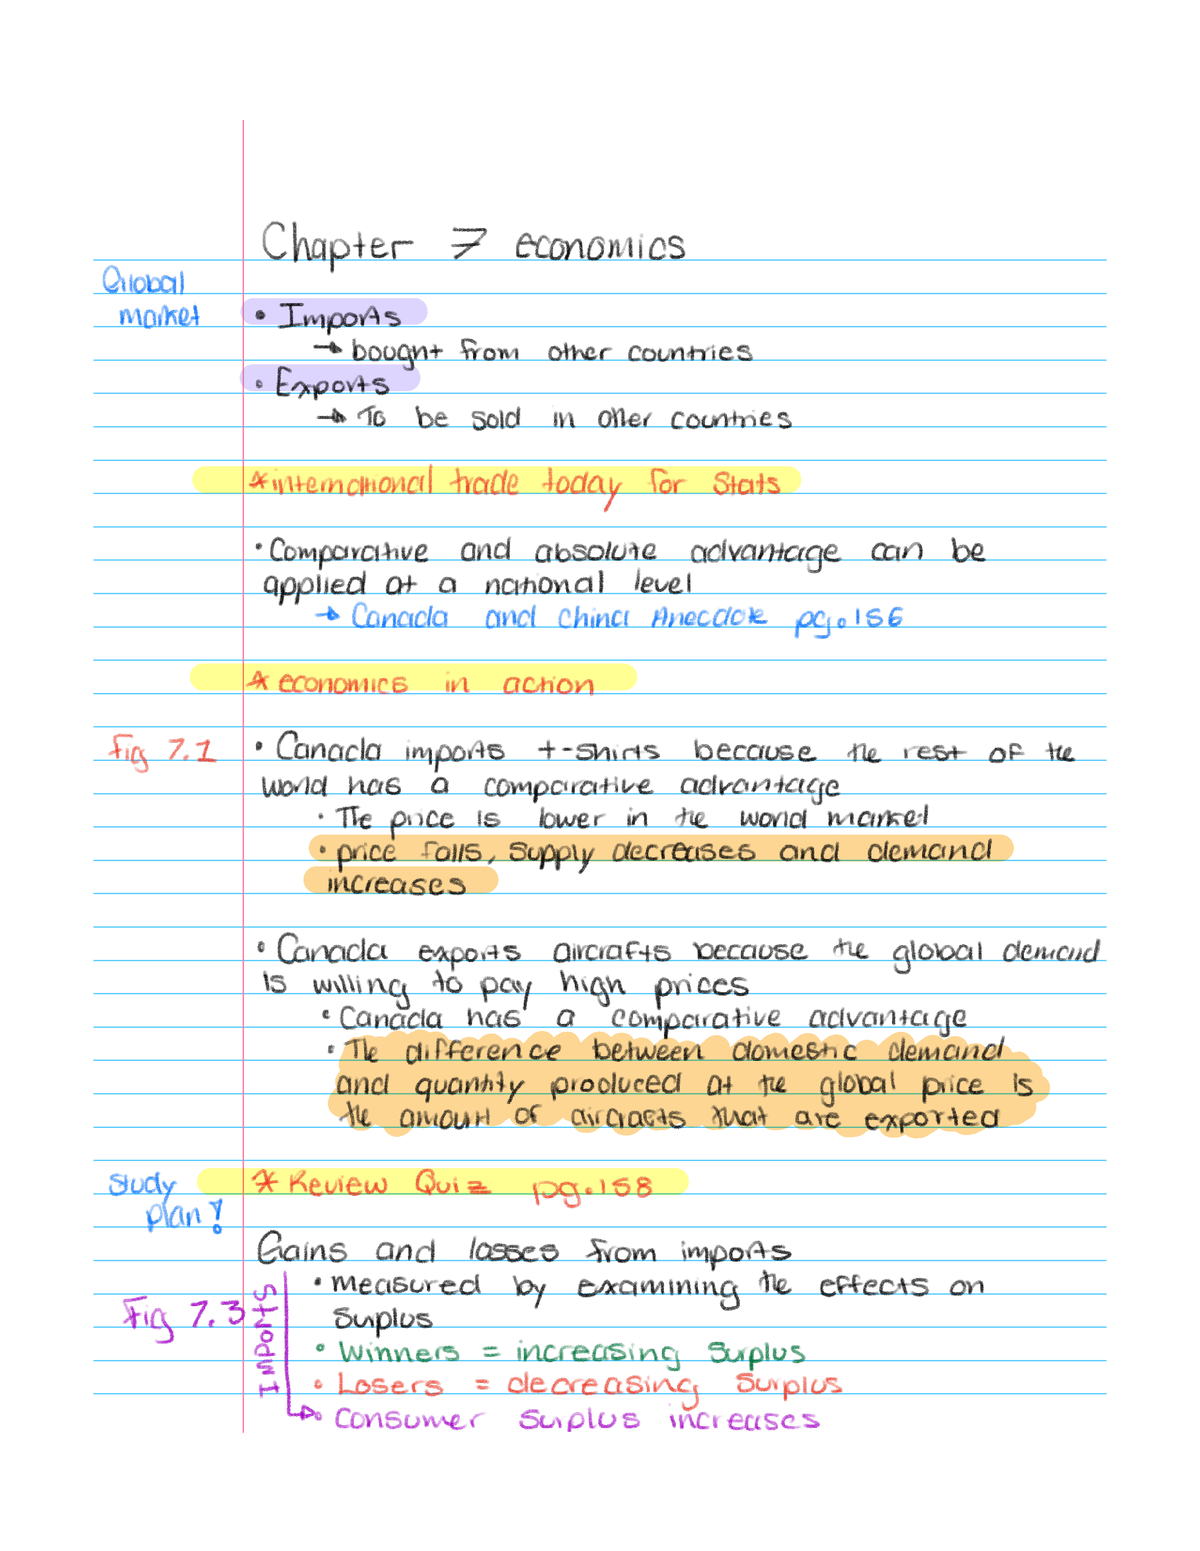 Chapter 7 economics
Global
market
• Imports
→ bought from other countries
• Exports
→ To be sold in other countries
*international trade today for Stats
• Comparative and absolute advantage can be
applied at a national level
→ Canada and China Anecdote pg.156
* economics in action
Fig 7.1
• Canada imports t-shirts because the rest of the
world has a comparative advantage
• The price is lower in the world market
• price falls, supply decreases and demand
increases
• Canada exports aircrafts because the global demand
is willing to pay high prices
• Canada has a comparative advantage
• The difference between domestic demand
and quantity produced at the global price is
the amount of aircracts that are exported
Study
plan!
* Review Quiz pg.158
Gains and losses from imports
Fig 7.3
Imports
• measured by examining the effects on
Surplus
• Winners = increasing Surplus
• Losers = decreasing Surplus
→• Consumer Surplus increases